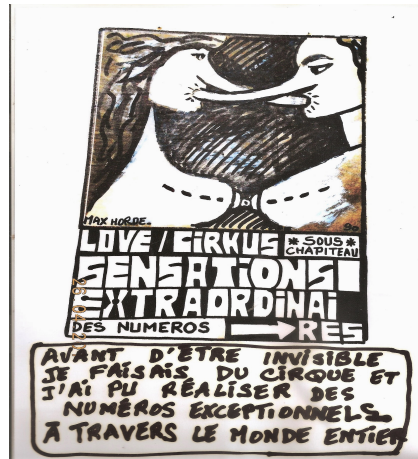 MAX HORDE.
90
LOVE / CIRKUS * SOUS *
CHAPITEAU
SENSATIONS
EXTRAORDINAI
DES NUMEROS → RES
AVANT D'ÊTRE INVISIBLE
JE FAISAIS DU CIRQUE ET
J'AI PU RÉALISER DES
NUMÉROS EXCEPTIONNELS
À TRAVERS LE MONDE ENTIER